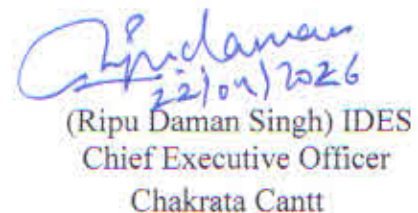 Ripudaman
22/04/2026
(Ripu Daman Singh) IDES
Chief Executive Officer
Chakrata Cantt